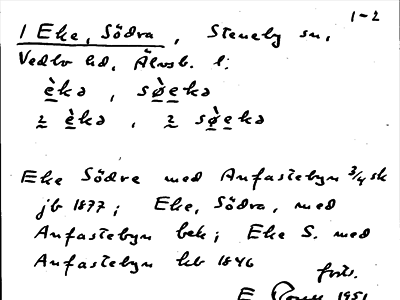 1-2
1 Eke, Södra, Steneby sn,
Vedbo hd, Älvsb. l:
è̱kə, sø̱̀e̱kə
ꝛ̰ è̱kə, ꝛ̰ sø̱̀e̱kə
Eke Södra med Anfastebyn 3/4 sk
jb 1877; Eke, Södra, med
Anfastebyn bek; Eke S. med
Anfastebyn kb 1846
forts.
E 1951